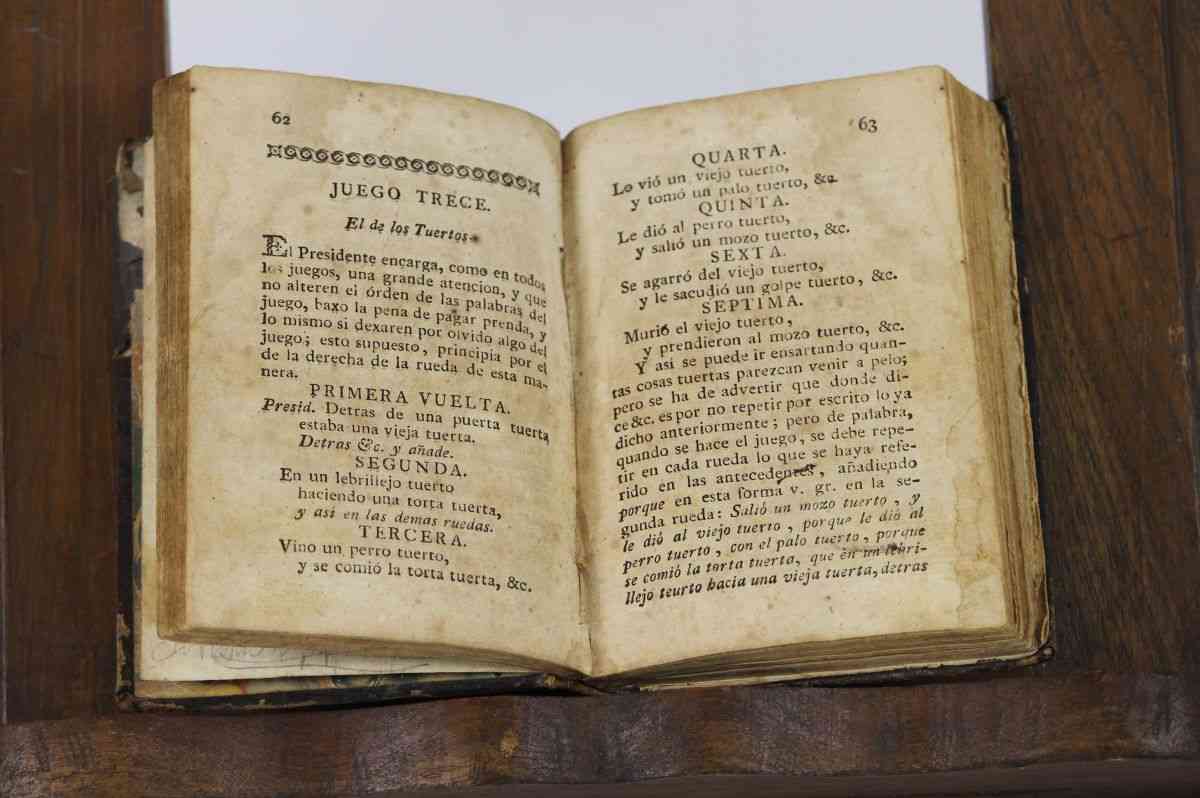 62
JUEGO TRECE.
El de los Tuertos.
El Presidente encarga, como en todos
los juegos, una grande atencion, y que
no alteren el órden de las palabras del
juego, baxo la pena de pagar prenda, y
lo mismo si dexaren por olvido algo del
juego; esto supuesto, principia por el
de la derecha de la rueda de esta ma-
nera.
PRIMERA VUELTA.
Presid. Detras de una puerta tuerta
estaba una vieja tuerta.
Detras &c. y añade.
SEGUNDA.
En un lebrillejo tuerto
haciendo una torta tuerta,
y asi en las demas ruedas.
TERCERA.
Vino un perro tuerto,
y se comió la torta tuerta, &c.
63
QUARTA.
Lo vió un viejo tuerto,
y tomó un palo tuerto, &c.
QUINTA.
Le dió al perro tuerto,
y salió un mozo tuerto, &c.
SEXTA.
Se agarró del viejo tuerto,
y le sacudió un golpe tuerto, &c.
SEPTIMA.
Murió el viejo tuerto,
y prendieron al mozo tuerto, &c.
Y asi se puede ir ensartando quan-
tas cosas tuertas parezcan venir a pelo;
pero se ha de advertir que donde di-
ce &c. es por no repetir por escrito lo ya
dicho anteriormente; pero de palabra,
quando se hace el juego, se debe repe-
tir en cada rueda lo que se haya refe-
rido en las antecedentes, añadiendo
porque en esta forma v. gr. en la se-
gunda rueda: Salió un mozo tuerto, y
le dió al viejo tuerto, porque le dió al
perro tuerto, con el palo tuerto, porque
se comió la torta tuerta, que en un lebri-
llejo teurto hacia una vieja tuerta, detras